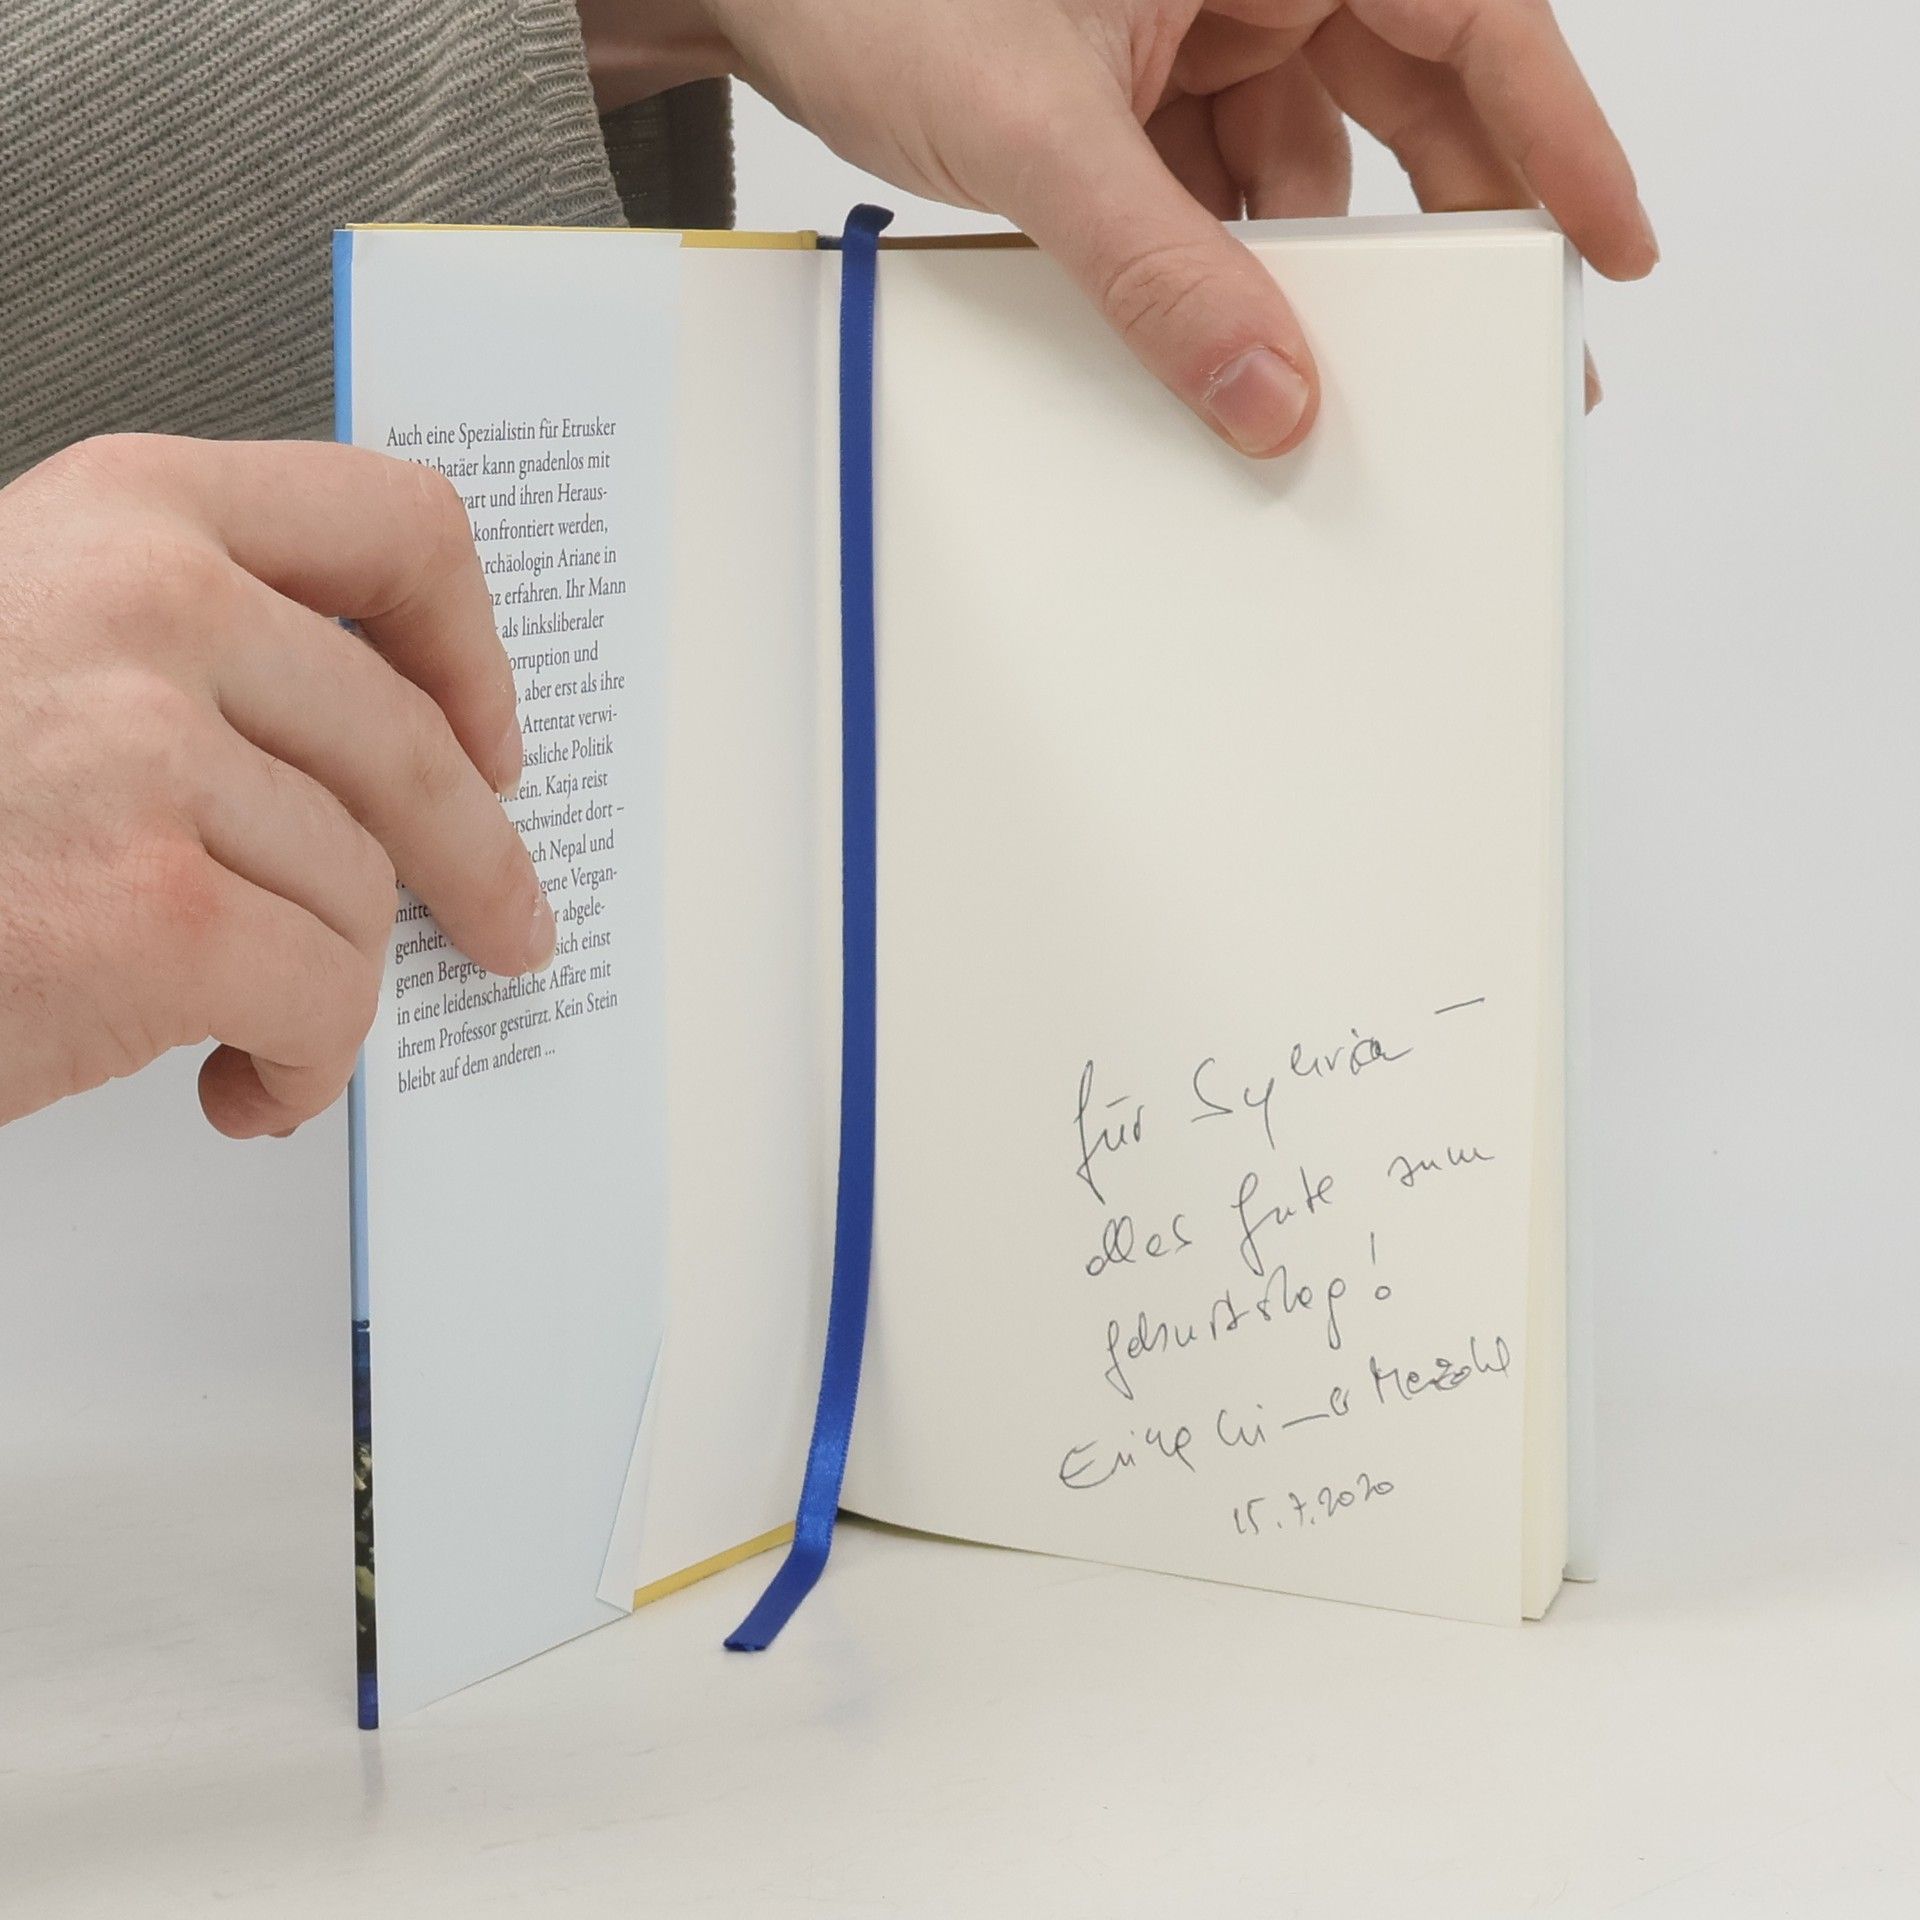 Auch eine Spezialistin für Etrusker
batäer kann gnadenlos mit
wart und ihren Heraus-
konfrontiert werden,
Archäologin Ariane in
erfahren. Ihr Mann
als linksliberaler
orruption und
, aber erst als ihre
Attentat verwi-
ässliche Politik
ein. Katja reist
erschwindet dort –
ch Nepal und
gene Vergan-
mitte r abgele-
genheit. sich einst
genen Bergreg
in eine leidenschaftliche Affäre mit
ihrem Professor gestürzt. Kein Stein
bleibt auf dem anderen ...
für Sylvia –
alles Gute zum
Geburtstag!
15.7.2020